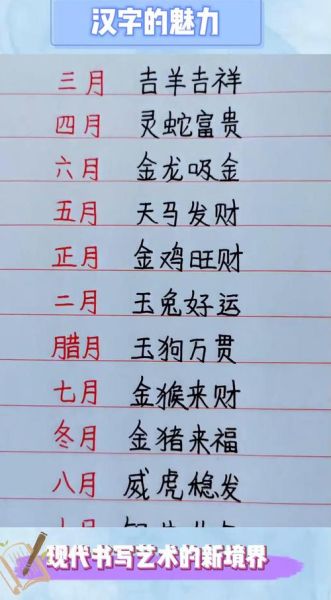 汉字的魅力
三月 吉羊吉祥
四月 灵蛇富贵
六月 金龙吸金
五月 天马发财
正月 金鸡旺财
二月 玉兔好运
腊月 玉狗万贯
七月 金猴来财
冬月 金猪来福
八月 威虎稳发
现代书写艺术的新境界